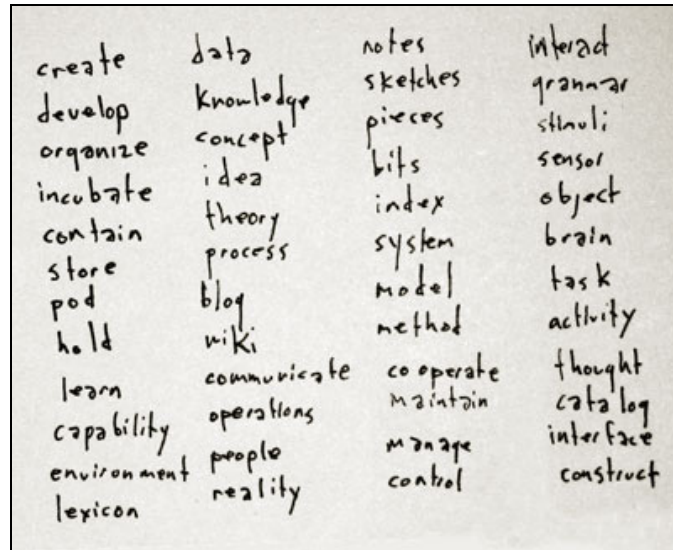 create
develop
organize
incubate
contain
store
pod
hold
learn
capability
environment
lexicon
data
knowledge
concept
idea
theory
process
blog
wiki
communicate
operations
people
reality
notes
sketches
pieces
bits
index
system
model
method
cooperate
maintain
manage
control
interact
grammar
stimuli
sensor
object
brain
task
activity
thought
catalog
interface
construct